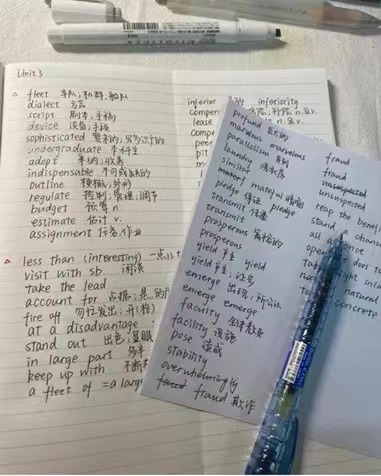 Unit 3
fleet 车队;机群;船队
dialect 方言
script 剧本;手稿
device 设备;手段
sophisticated 复杂的;
undergraduate 本科生
adopt 采纳;收养
indispensable 不可或缺的
outline 模概;
regulate 控制;管理;调节
budget 预算 n.
estimate 估计 v.
assignment 任务,作业
less than (interesting) 一点儿
visit with sb. 闲谈
take the lead
account for 占据;是…的
fire off
at a disadvantage
stand out 出色;显眼
in large part 多半
keep up with 不断
a fleet of = a large
inferior 的 inferiority
compen n.&v.
lease n.&v.
com
pee
pit
profund 巨大的
marvelous marvelous
parallelism 排列
laundry 洗衣房
similar
mater
pledge 保证 pledge
transmit 传播
transmit
prosperous 富裕的
prosperous
yield 产生 yield
yield 产生;让步
emerge 出现;
emerge emerge
faculty 全体教员
facility 设施
pose 造成
stability
overwhelmingly
fraud fraud 欺诈
fraud
fraud
unsuspected
unsuspected
reap the benef
stand chan
all
oper door to
tak ight in
not natural
to concrete